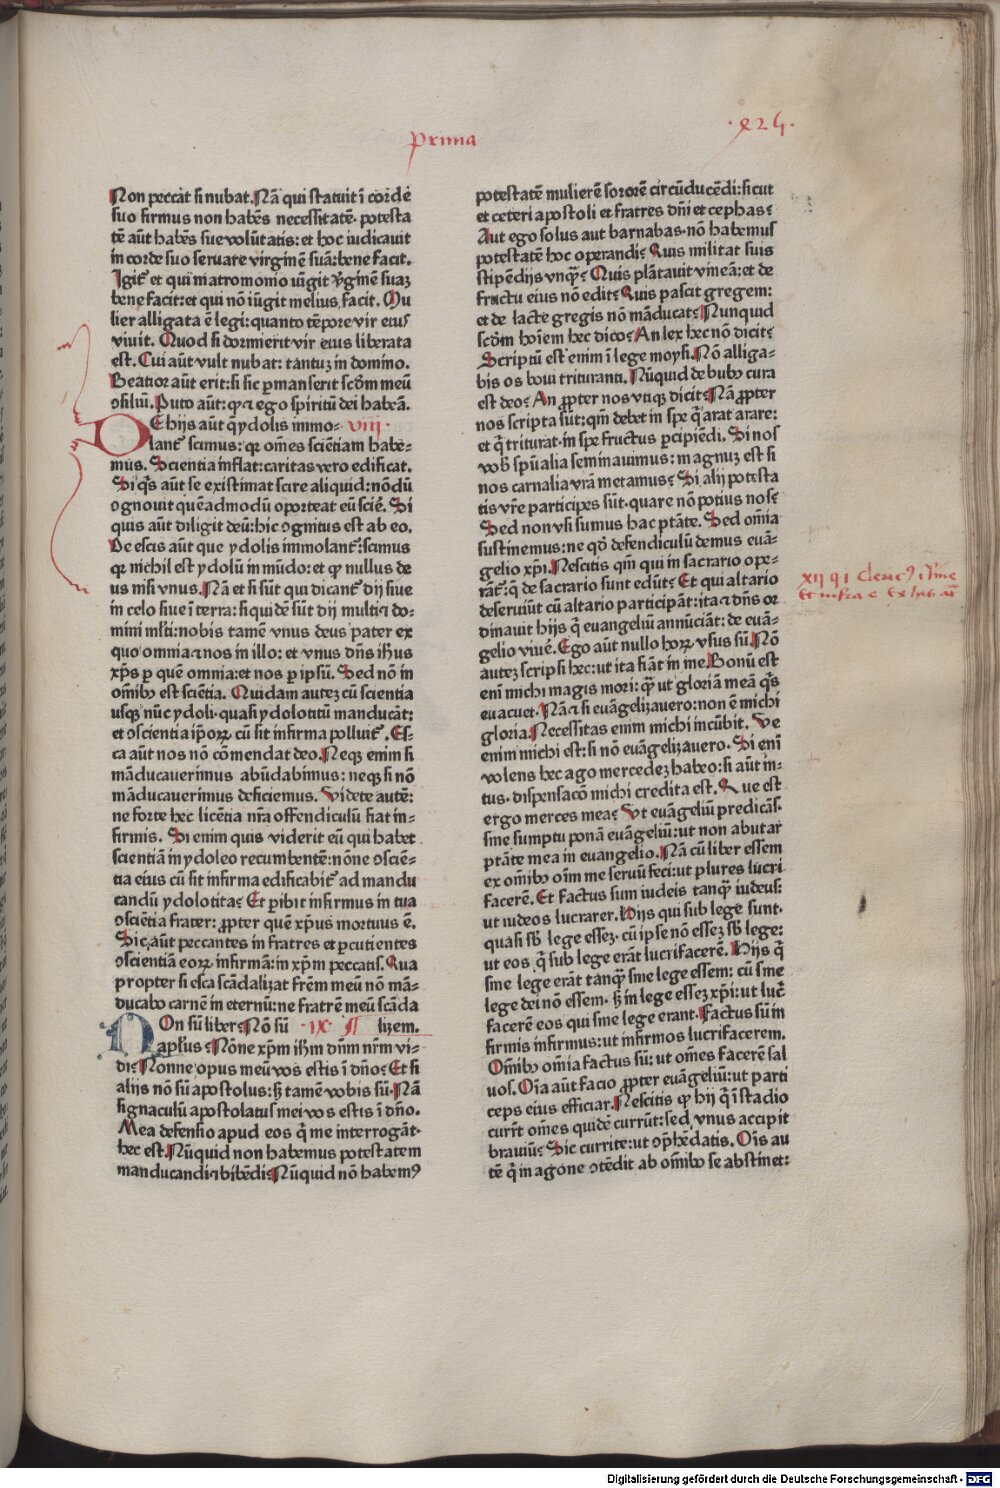 Prima
Non peccat si nubat. Nā qui statuit ī corde
suo firmus non habēs necessitatē· potesta
tē aūt habēs sue volūtatis: et hoc iudicauit
in corde suo seruare virginē suā: bene facit.
Igit᷑ et qui matromonio iūgit v̓ginē suaz
bene facit: et qui nō iūgit melius facit. Mu
lier alligata ē legi: quanto tēpore vir eius
viuit. Quod si dormierit vir eius liberata
est. Cui aūt vult nubat: tantuz in domino.
Beatior aūt erit: si sic ꝑmanserit scḋm meū
ꝯsiliū. Puto aūt: ꝙ ⁊ ego spiritū dei habeā.
DE hijs aūt q̄ ydolis immo- viii·
lant᷑ scimus: qꝛ om̄es sciētiam habe-
mus. Scientia inflat: caritas vero edificat.
Si q̄s aūt se existimat scire aliquid: nōdū
ꝯgnouit quēadmodū oporteat eū scie̓. Si
quis aūt diligit deū: hic ꝯgnitus est ab eo.
De escis aūt que ydolis immolant᷑: scimus
qꝛ nichil est ydolū in mūdo: et ꝙ nullus de
us nisi vnus. Nā et si sūt qui dicant᷑ dij siue
in celo siue ī terra: siquidē sūt dij multi ⁊ do-
mini ml̓ti: nobis tamē vnus deus pater ex
quo omnia ⁊ nos in illo: et vnus dn̄s ih̄us
xp̄s ꝑ quē omnia: et nos ꝑ ipsū. Sed nō in
om̄ibꝰ est sciētia. Quidam autez cū scientia
usqꝫ nūc ydoli· quasi ydolotitū manducāt:
et ꝯscientia ip̄oꝝ cū sit infirma polluit᷑. Es-
ca aūt nos nō cōmendat deo. Neqꝫ enim si
māducauerimus abūdabimus: neqꝫ si nō
māducauerimus deficiemus. Videte autē:
ne forte hec licētia nr̄a offendiculū fiat in-
firmis. Si enim quis viderit eū qui habet
scientiā in ydoleo recumbentē: nōne ꝯsciē-
tia eius cū sit infirma edificabit᷑ ad mandu
candū ydolotita? Et ꝑibit infirmus in tua
ꝯsciētia frater: ꝓpter quē xp̄us mortuus ē.
Sic aūt peccantes in fratres et ꝑcutientes
ꝯscientiā eoꝝ infirmā: in xp̄m peccatis. Qua
propter si esca scādalizat fr̄em meū nō mā-
ducabo carnē in eternū: ne fratrē meū scāda
NOn sū liber? Nō sū ·ix· ¶ lizem.
apl̓us? Nōne xp̄m ih̄m dn̄m nr̄m vi-
di? Nonne opus meū vos estis ī dn̄o? Et si
alijs nō sū apostolus: sꝫ tamē vobis sū. Nā
signaculū apostolatus mei vos estis ī dn̄o.
Mea defensio apud eos q̄ me interrogāt·
hec est. Nūquid non habemus potestatem
manducandi ⁊ bibēdi? Nūquid nō habemꝰ
potestatē mulierē sororē circūducēdi: sicut
et ceteri apostoli et fratres dn̄i et cephas?
Aut ego solus aut barnabas· nō habemus
potestatē hoc operandi? Quis militat suis
stipēdijs vnqꝫ̄? Quis plātauit vineā: et de
fructu eius nō edit? Quis pascit gregem:
et de lacte gregis nō māducat? Nunquid
scḋm hoīem hec dico? An lex hec nō dicit?
Scriptū est enim ī lege moysi. Nō alliga-
bis os boui trituranti. Nūquid de bubꝰ cura
est deo? An ꝓpter nos vtiqꝫ dicit? Nā ꝓpter
nos scripta sūt: qm̄ debet in spe q̓ arat arare:
et q̓ triturat· in spe fructus ꝑcipiēdi. Si nos
vobꝭ spūalia seminauimus: magnuz est si
nos carnalia vr̄a metamus? Si alij potesta
tis vr̄e participes sūt· quare nō potius nos?
Sed non vsi sumus hac ptāte. Sed om̄ia
sustinemus: ne qḋ defendiculū demus euā-
gelio xp̄i. Nescitis qm̄ qui in sacrario ope-
rāt᷑: q̄ de sacrario sunt edūt? Et qui altario
deseruiūt cū altario participāt: ita ⁊ dn̄s or
dinauit hijs q̓ euangeliū annūciāt: de euā-
gelio viue̓. Ego aūt nullo hoꝝ vsus sū. Nō
autez scripsi hec: ut ita fiāt in me. Bonū est
enī michi magis mori: qꝫ̄ ut gloriā meā q̄s
euacuet. Nā ⁊ si euāgelizauero: non ē michi
gloria. Necessitas enim michi incūbit. Ve
enim michi est: si nō euāgelizauero. Si enī
volens hec ago mercedez habeo: si aūt in-
tus· dispensacō michi credita est. Que est
ergo merces mea? Vt euāgeliū predicās·
sine sumptu ponā euāgeliū: ut non abutar
ptāte mea in euangelio. Nā cū liber essem
ex om̄ibꝰ oīm me seruū feci: ut plures lucri
facerē. Et factus sum iudeis tanqꝫ̄ iudeus:
ut iudeos lucrarer. Hijs qui sub lege sunt·
quasi sb̄ lege essez· cū ipse nō essez sb̄ lege:
ut eos q̓ sub lege erāt lucrifacerē. Hijs q̓
sine lege erāt tanqꝫ̄ sine lege essem: cū sine
lege dei nō essem· sꝫ in lege essez xp̄i: ut luc̓
facerē eos qui sine lege erant. Factus sū in
firmis infirmus: ut infirmos lucrifacerem.
Om̄ibꝰ om̄ia factus sū: ut om̄es facerē sal
uos. Oīa aūt facio ꝓpter euāgeliū: ut parti
ceps eius efficiar. Nescitis ꝙ hij q̓ ī stadio
currūt om̄es quidē currūt: sed vnus accipit
brauiū? Sic currite: ut ꝯp̄hēdatis. Oīs au
tē q̓ in agone ꝯtēdit ab om̄ibꝰ se abstinet:
Digitalisierung gefördert durch die Deutsche Forschungsgemeinschaft - DFG